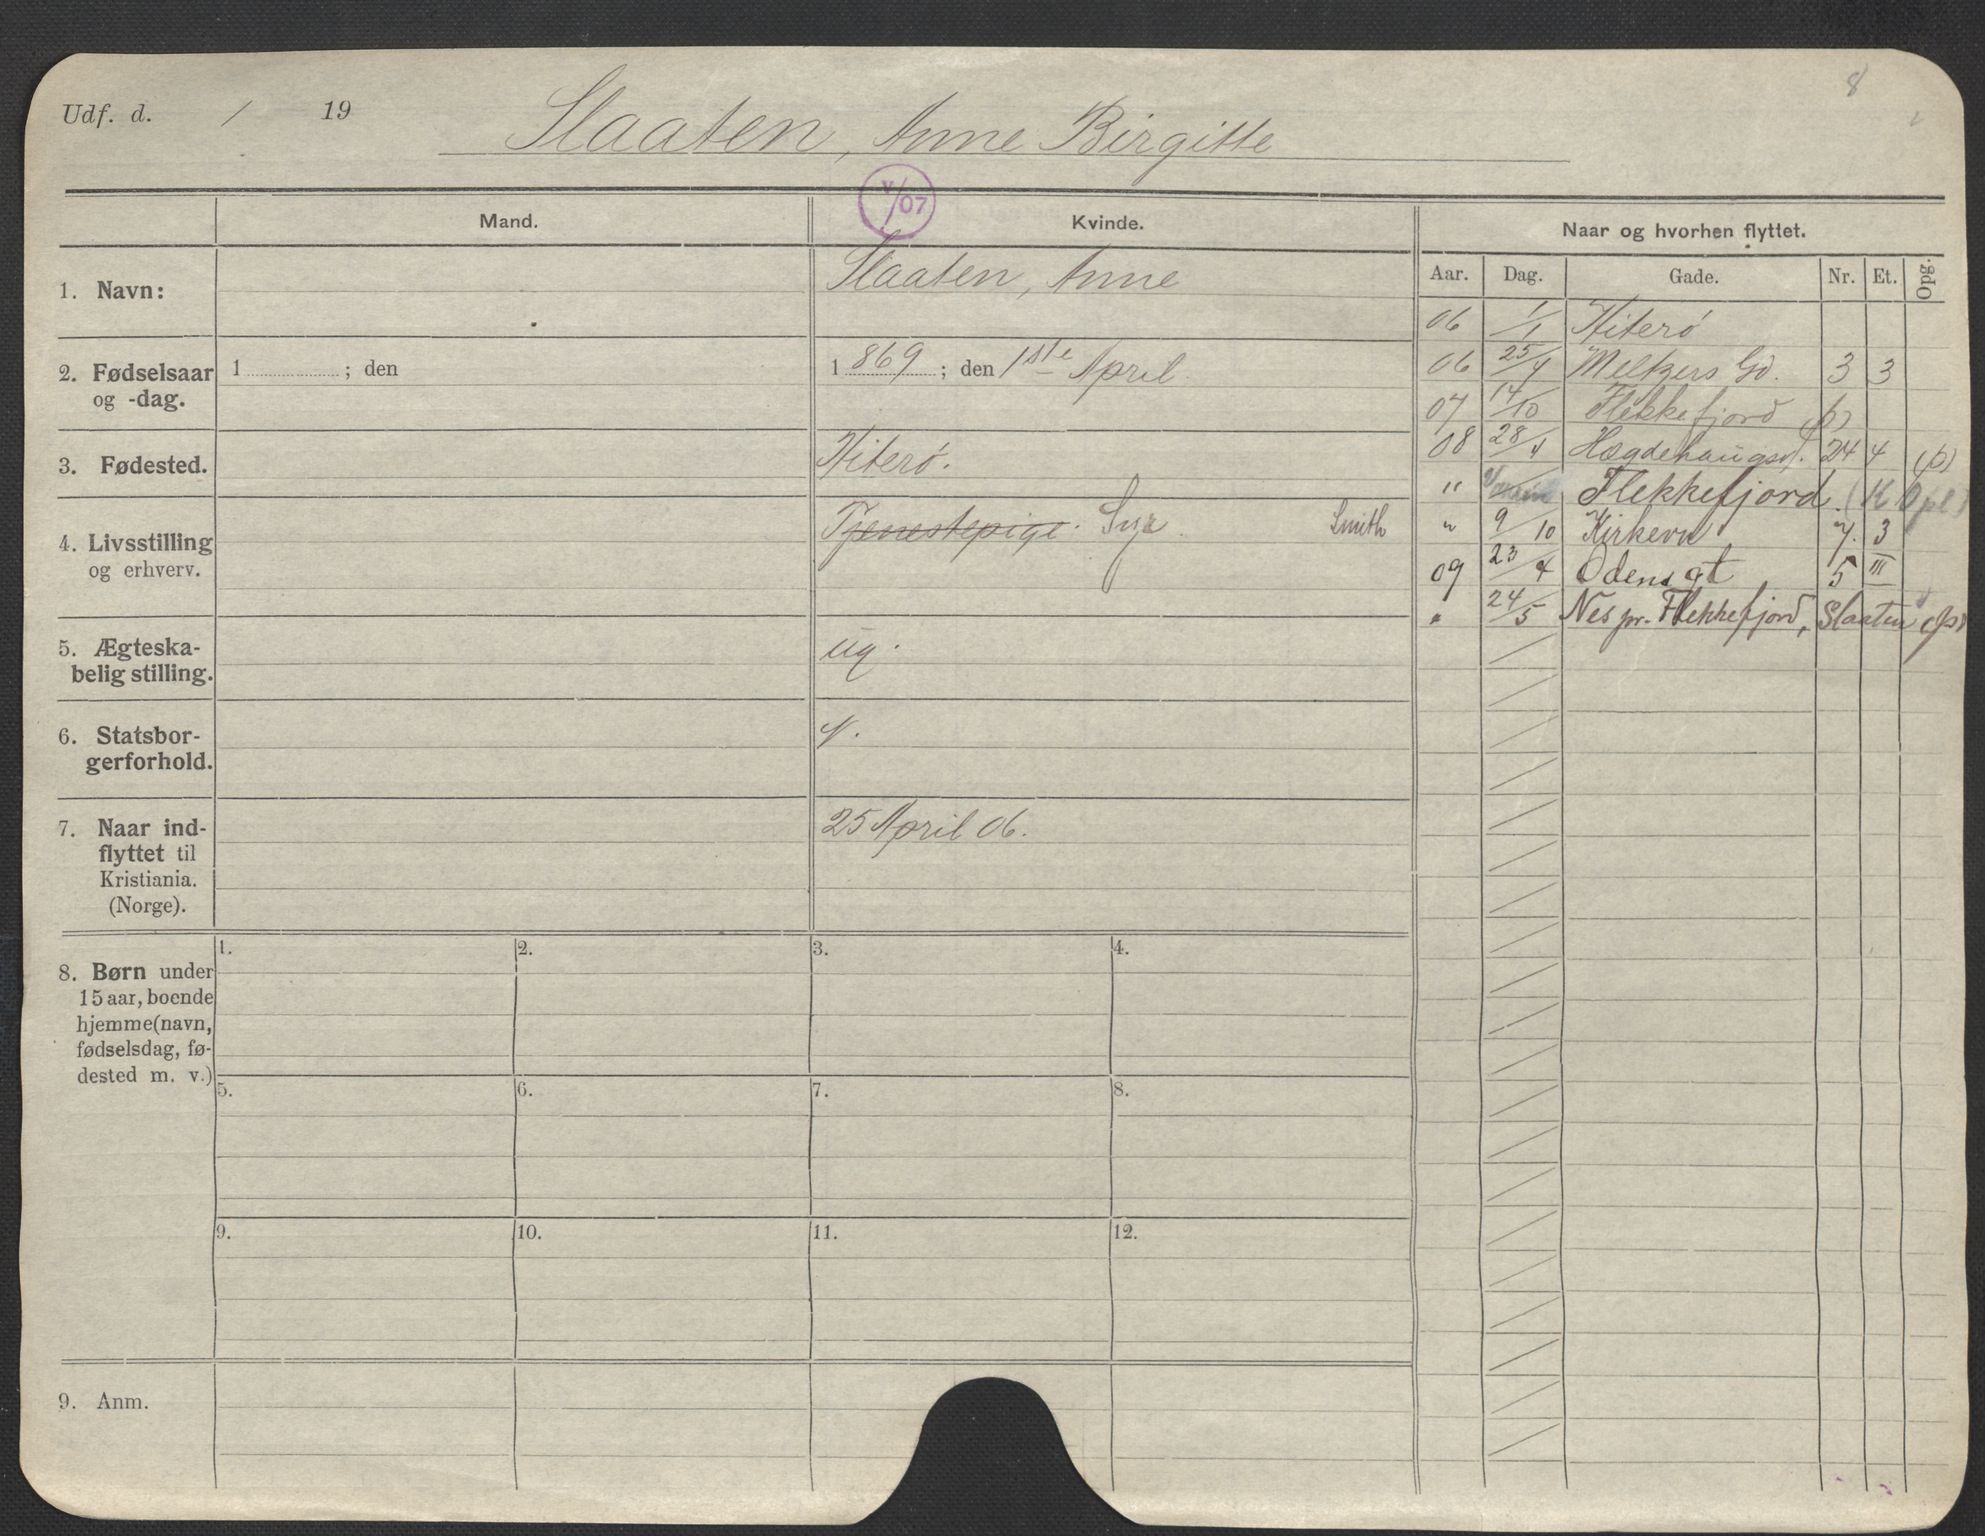 Udf. d. / 19
Slaaten, Anne Birgitte
8
V/07
Mand.
Kvinde.
Naar og hvorhen flyttet.
Aar. Dag. Gade. Nr. Et. Opg.
1. Navn:
Slaaten, Anne
2. Fødselsaar
og -dag.
1 ; den
1 869 ; den 1ste April
3. Fødested.
Hiterø.
4. Livsstilling
og erhverv.
Tjenestepige. Sye Smith
5. Ægteska-
belig stilling.
ug.
6. Statsbor-
gerforhold.
N.
7. Naar ind-
flyttet til
Kristiania.
(Norge).
25 April 06.
06 1/1 Hiterø
06 25/4 Meltzers Gd. 3 3
07 14/10 Flekkefjord (p)
08 28/4 Hægdehaugsv. 24 4 (p)
" Flekkefjord. (K Opl)
" 9/10 Kirkevn 7. 3
09 23/4 Odens gt 5 III
" 24/5 Nes pr. Flekkefjord, Slaaten (p)
8. Børn under
15 aar, boende
hjemme (navn,
fødselsdag, fø-
dested m. v.)
1. 2. 3. 4.
5. 6. 7. 8.
9. 10. 11. 12.
9. Anm.